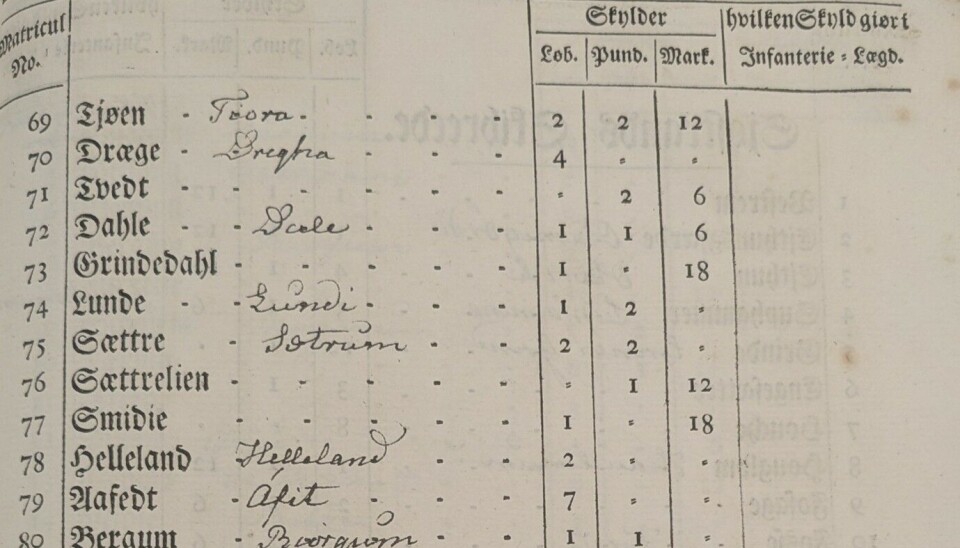 Matricul No. Skylder hvilken Skyld giør i
Lob. Pund. Mark. Infanterie = Lægd.
69 Tjøen - Tiora - - - - 2 2 12
70 Dræge - Dregha - - - 4 = =
71 Tvedt - - - - - - = 2 6
72 Dahle - Dale - - - 1 1 6
73 Grindedahl - - - - - 1 = 18
74 Lunde - Lundi - - - 1 2 =
75 Sættre - Sætrum - - 2 2 =
76 Sættrelien - - - - - = 1 12
77 Smidie - - - - - 1 = 18
78 Helleland Helleland - - 2 = =
79 Aafedt - Afit - - - - 7 = =
80 Bergum - - - 1 1 =